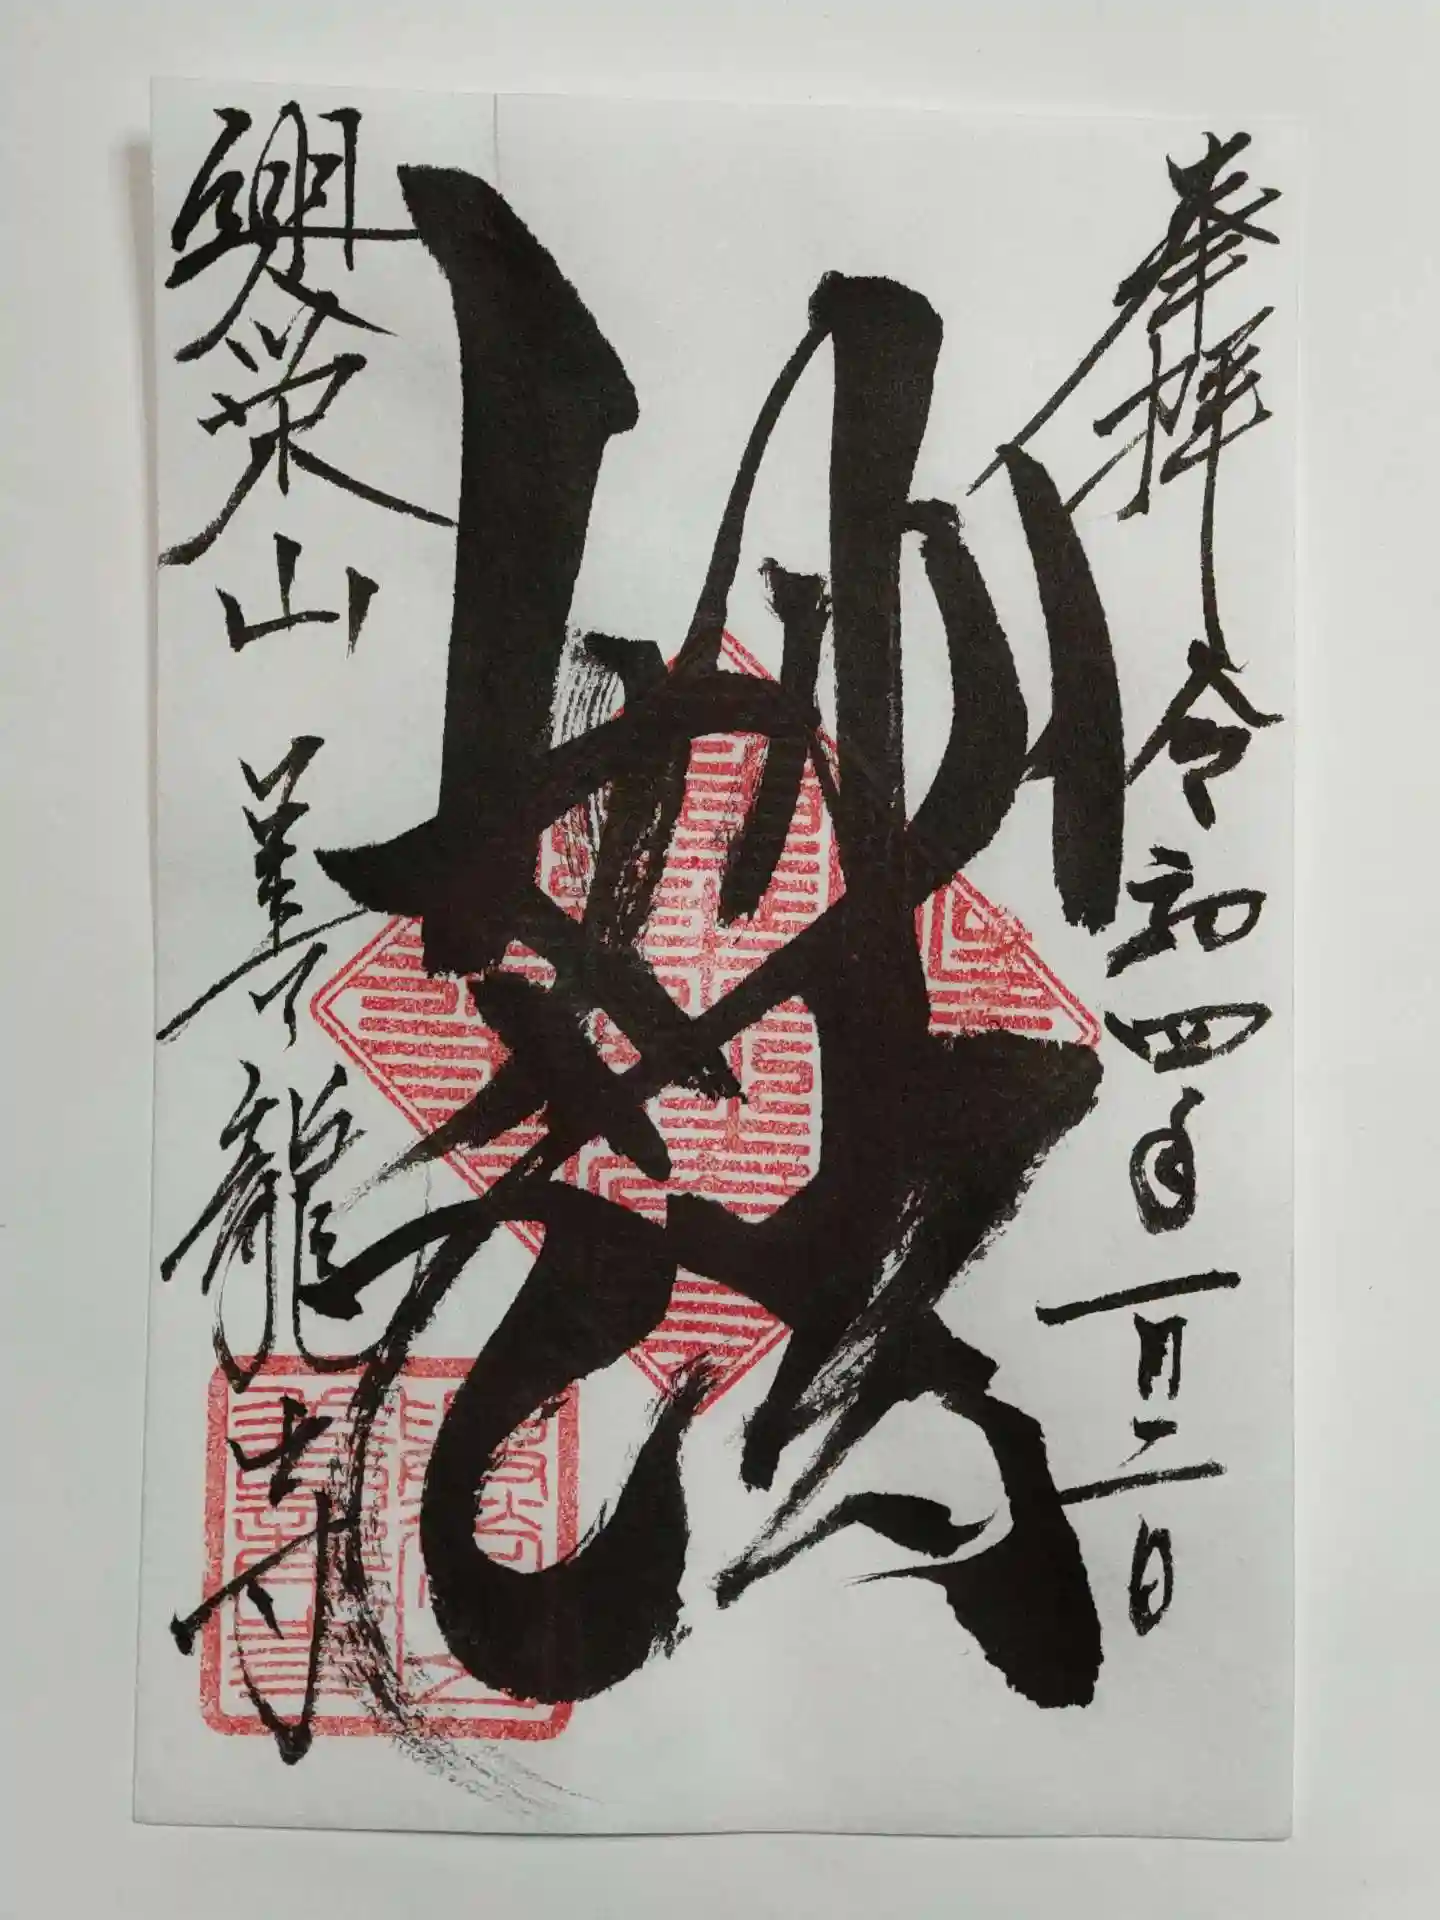 奉拝 令和四年一月二日
妙法
興栄山 善龍寺